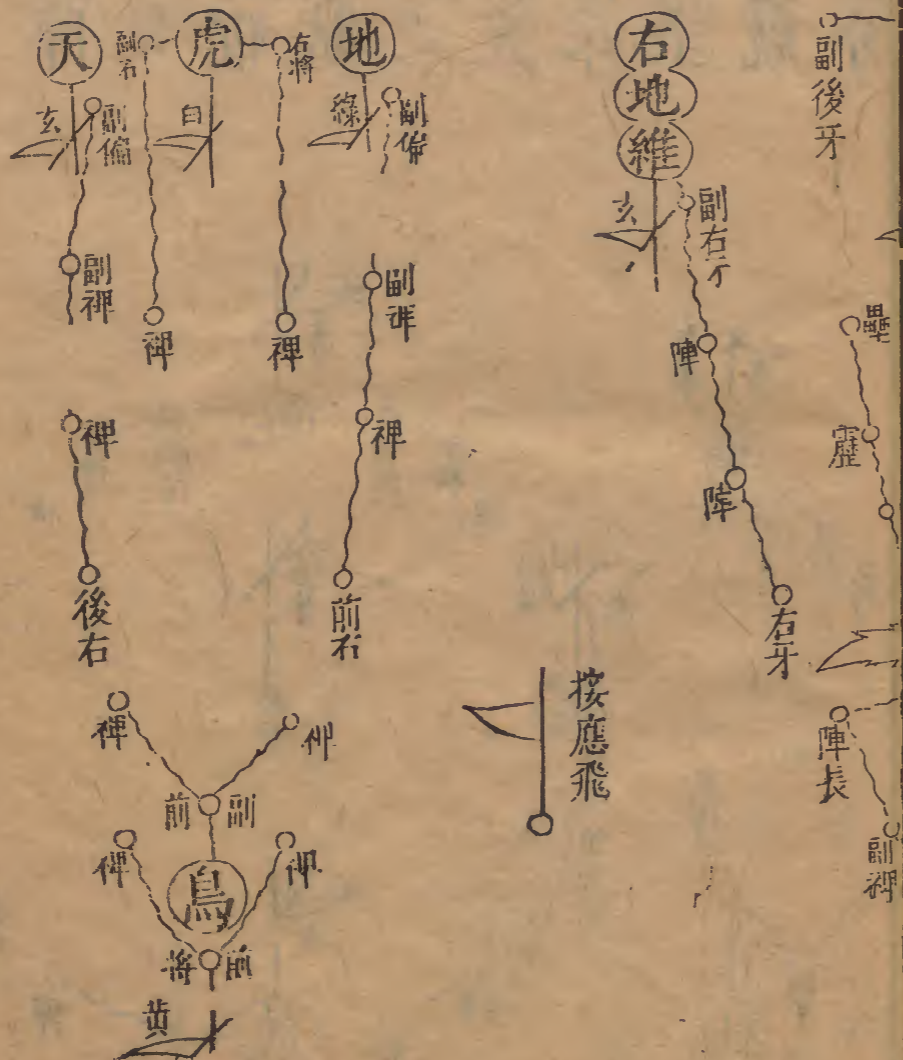 副後牙
壘
陣長
副裨
右地維
玄
副右牙
陣
陣
右牙
接應飛
地
綠
副偏
副裨
裨
前右
右將
虎
白
副右
裨
裨
天
玄
副偏
副裨
裨
後右
裨
裨
副前
裨
裨
鳥
前將
黄